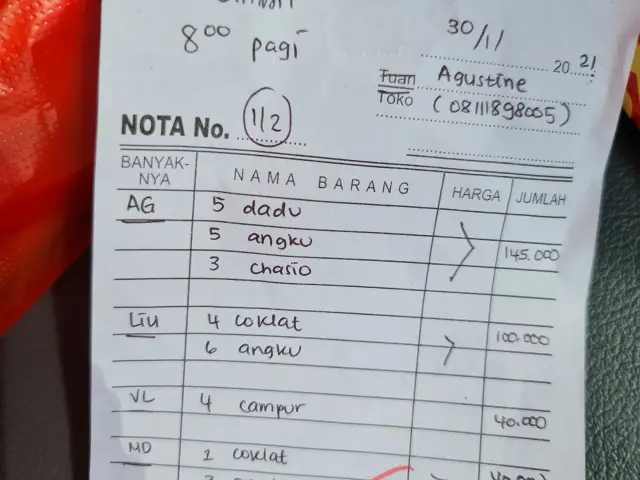 8⁰⁰ pagi
30/1/ 2021
Tuan Agustine
Toko (08111898005)
NOTA No. 1/2
BANYAK-NYA NAMA BARANG HARGA JUMLAH
AG 5 dadu
5 angku 145.000
3 chasio
Liu 4 coklat 100.000
6 angku
VL 4 campur 40.000
MD 1 coklat